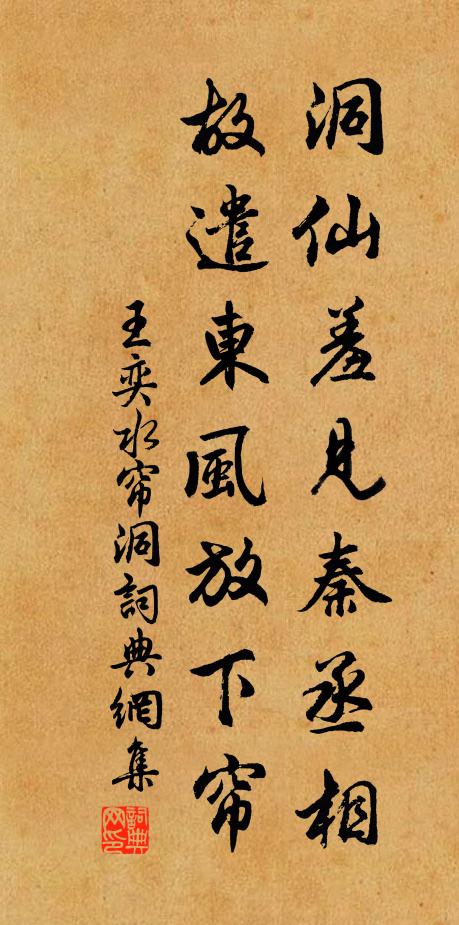 洞仙羞見秦丞相
故遣東風放下帘
王奕水帘洞詞典網集
詞典网印